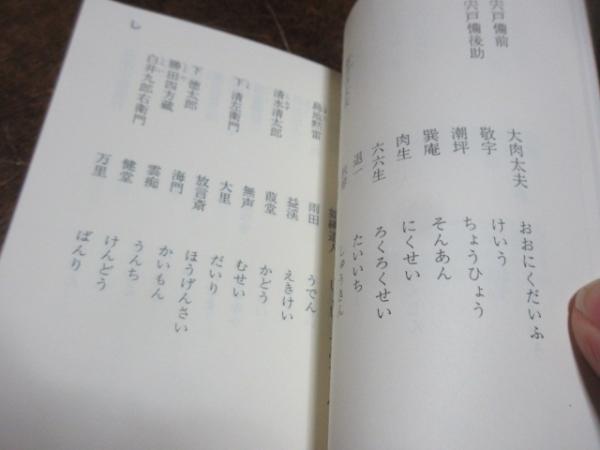 宍戸備前
宍戸備後助
大肉太夫 おおにくだいふ
敬宇 けいう
潮坪 ちょうひょう
巽庵 そんあん
肉生 にくせい
六六生 ろくろくせい
退一 たいいち
しゅうきん
し
島地黙雷
雨田 うでん
益渓 えきけい
清水清太郎
葭堂 かどう
無声 むせい
下 清左衛門
大里 だいり
放言斎 ほうげんさい
下 徳太郎
海門 かいもん
勝田四方蔵
雲痴 うんち
白井九郎右衛門
健堂 けんどう
万里 ばんり